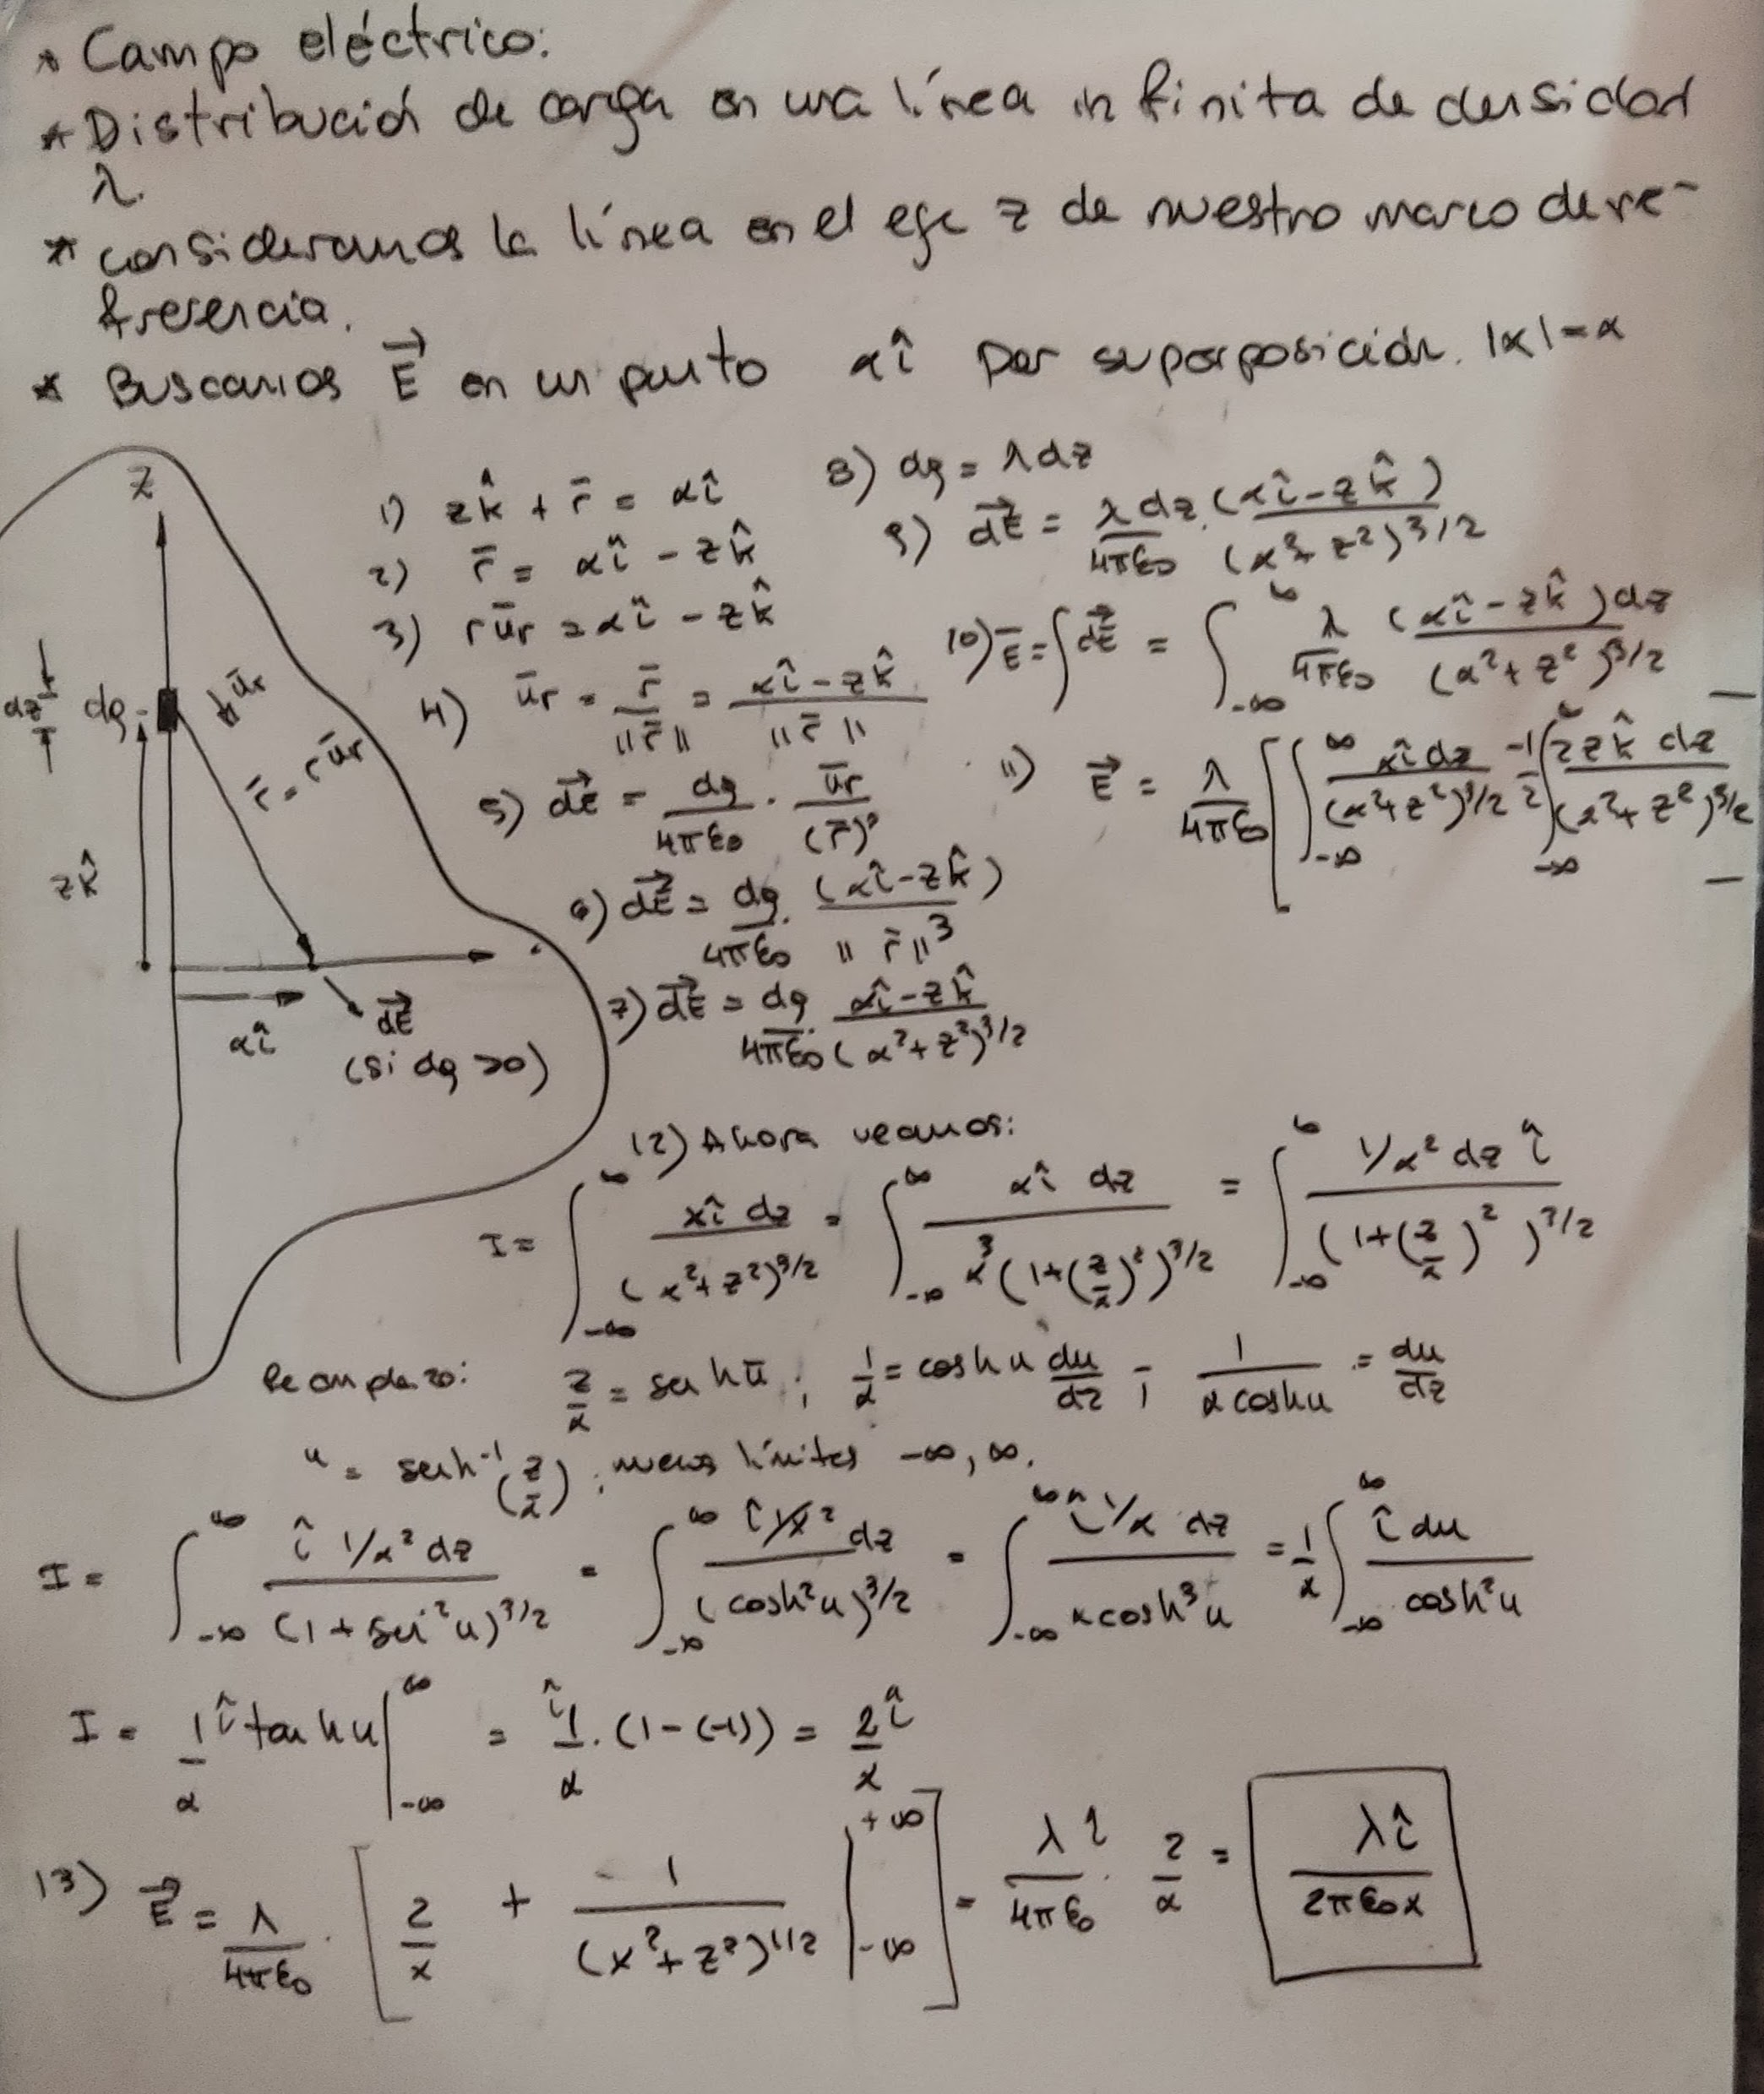 * Campo eléctrico:
* Distribución de carga en una línea infinita de densidad
λ.
* consideramos la línea en el eje z de nuestro marco de re-
ferencia.
* Buscamos E⃗ en un punto αî por superposición. |α|=α
z
dz
dq
ūr
r̄ = rūr
zk̂
αî
dE⃗
(si dq >0)
1) zk̂ + r̄ = αî
2) r̄ = αî - zk̂
3) rūr = αî - zk̂
4) ūr = r̄/||r̄|| = (αî - zk̂)/||r̄||
5) dE⃗ = dq/4πε₀ · ūr/(r̄)²
6) dE⃗ = dq/4πε₀ · (αî - zk̂)/||r̄||³
7) dE⃗ = dq/4πε₀ · (αî - zk̂)/(α²+z²)^3/2
8) dq = λdz
9) dE⃗ = λdz/4πε₀ · (αî - zk̂)/(α²+z²)^3/2
10) Ē = ∫dE⃗ = ∫_-∞^∞ λ/4πε₀ (αî - zk̂)dz/(α²+z²)^3/2
11) E⃗ = λ/4πε₀ [∫_-∞^∞ αî dz/(α²+z²)^3/2 -1/2 ∫_-∞^∞ 2zk̂ dz/(α²+z²)^3/2
12) Ahora veamos:
I = ∫_-∞^∞ αî dz/(α²+z²)^3/2 = ∫_-∞^∞ αî dz/α³(1+(z/α)²)^3/2 = ∫_-∞^∞ 1/α² dz î/(1+(z/α)²)^3/2
Reemplazo: z/α = senh u ; 1/α = cosh u du/dz ; 1/(α cosh u) = du/dz
u = senh⁻¹(z/α) ; nuevos límites -∞, ∞.
I = ∫_-∞^∞ î 1/α² dz/(1+sen²u)^3/2 = ∫_-∞^∞ î 1/α² dz/(cosh²u)^3/2 = ∫_-∞^∞ î 1/α dz/(α cosh³u) = 1/α ∫_-∞^∞ î du/cosh²u
I = 1/α î tanh u |_-∞^∞ = î 1/α · (1-(-1)) = 2/α î
13) E⃗ = λ/4πε₀ · [2/α + 1/(α²+z²)^1/2 |_-∞^+∞] = λî/4πε₀ · 2/α = λî/2πε₀α